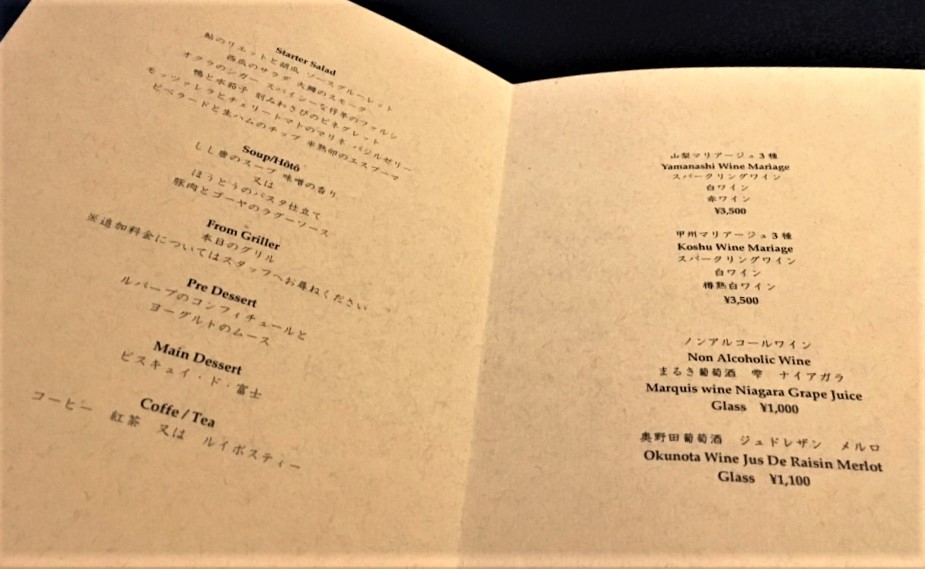 Starter Salad
鮎のリエットと胡瓜 ソースグルーレット
西瓜のサラダ 大鱒のスモーク
オクラのシガー スパイシーな仔羊のファルシ
鴨と水茄子 刻みわさびのビネグレット
モッツァレラとチェリートマトのマリネ バジルゼリー
ピペラードと生ハムのチップ 半熟卵のエスプーマ
Soup/Hôtô
しし唐のスープ 味噌の香り
又は
ほうとうのパスタ仕立て
豚肉とゴーヤのラグーソース
From Griller
本日のグリル
※追加料金についてはスタッフへお尋ねください
Pre Dessert
ルバーブのコンフィチュールと
ヨーグルトのムース
Main Dessert
ビスキュイ・ド・富士
Coffe / Tea
コーヒー 紅茶 又は ルイボスティー
山梨マリアージュ3種
Yamanashi Wine Mariage
スパークリングワイン
白ワイン
赤ワイン
¥3,500
甲州マリアージュ3種
Koshu Wine Mariage
スパークリングワイン
白ワイン
樽熟白ワイン
¥3,500
ノンアルコールワイン
Non Alcoholic Wine
まるき葡萄酒 雫 ナイアガラ
Marquis wine Niagara Grape Juice
Glass ¥1,000
奥野田葡萄酒 ジュドレザン メルロ
Okunota Wine Jus De Raisin Merlot
Glass ¥1,100